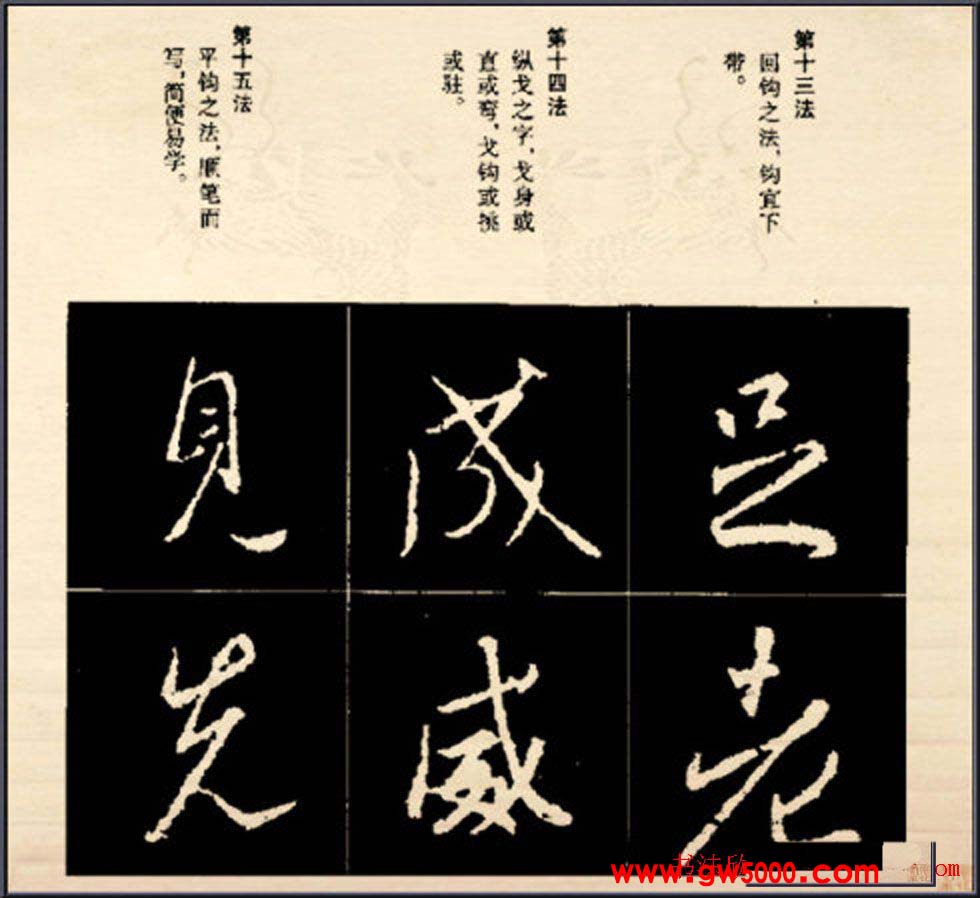 第十三法
回钩之法，钩宜下
带。
第十四法
纵戈之字，戈身或
直或弯，戈钩或挑
或驻。
第十五法
平钩之法，顺笔而
写，简便易学。
足
老
成
威
見
先
书法欣
www.gw5000.com
om